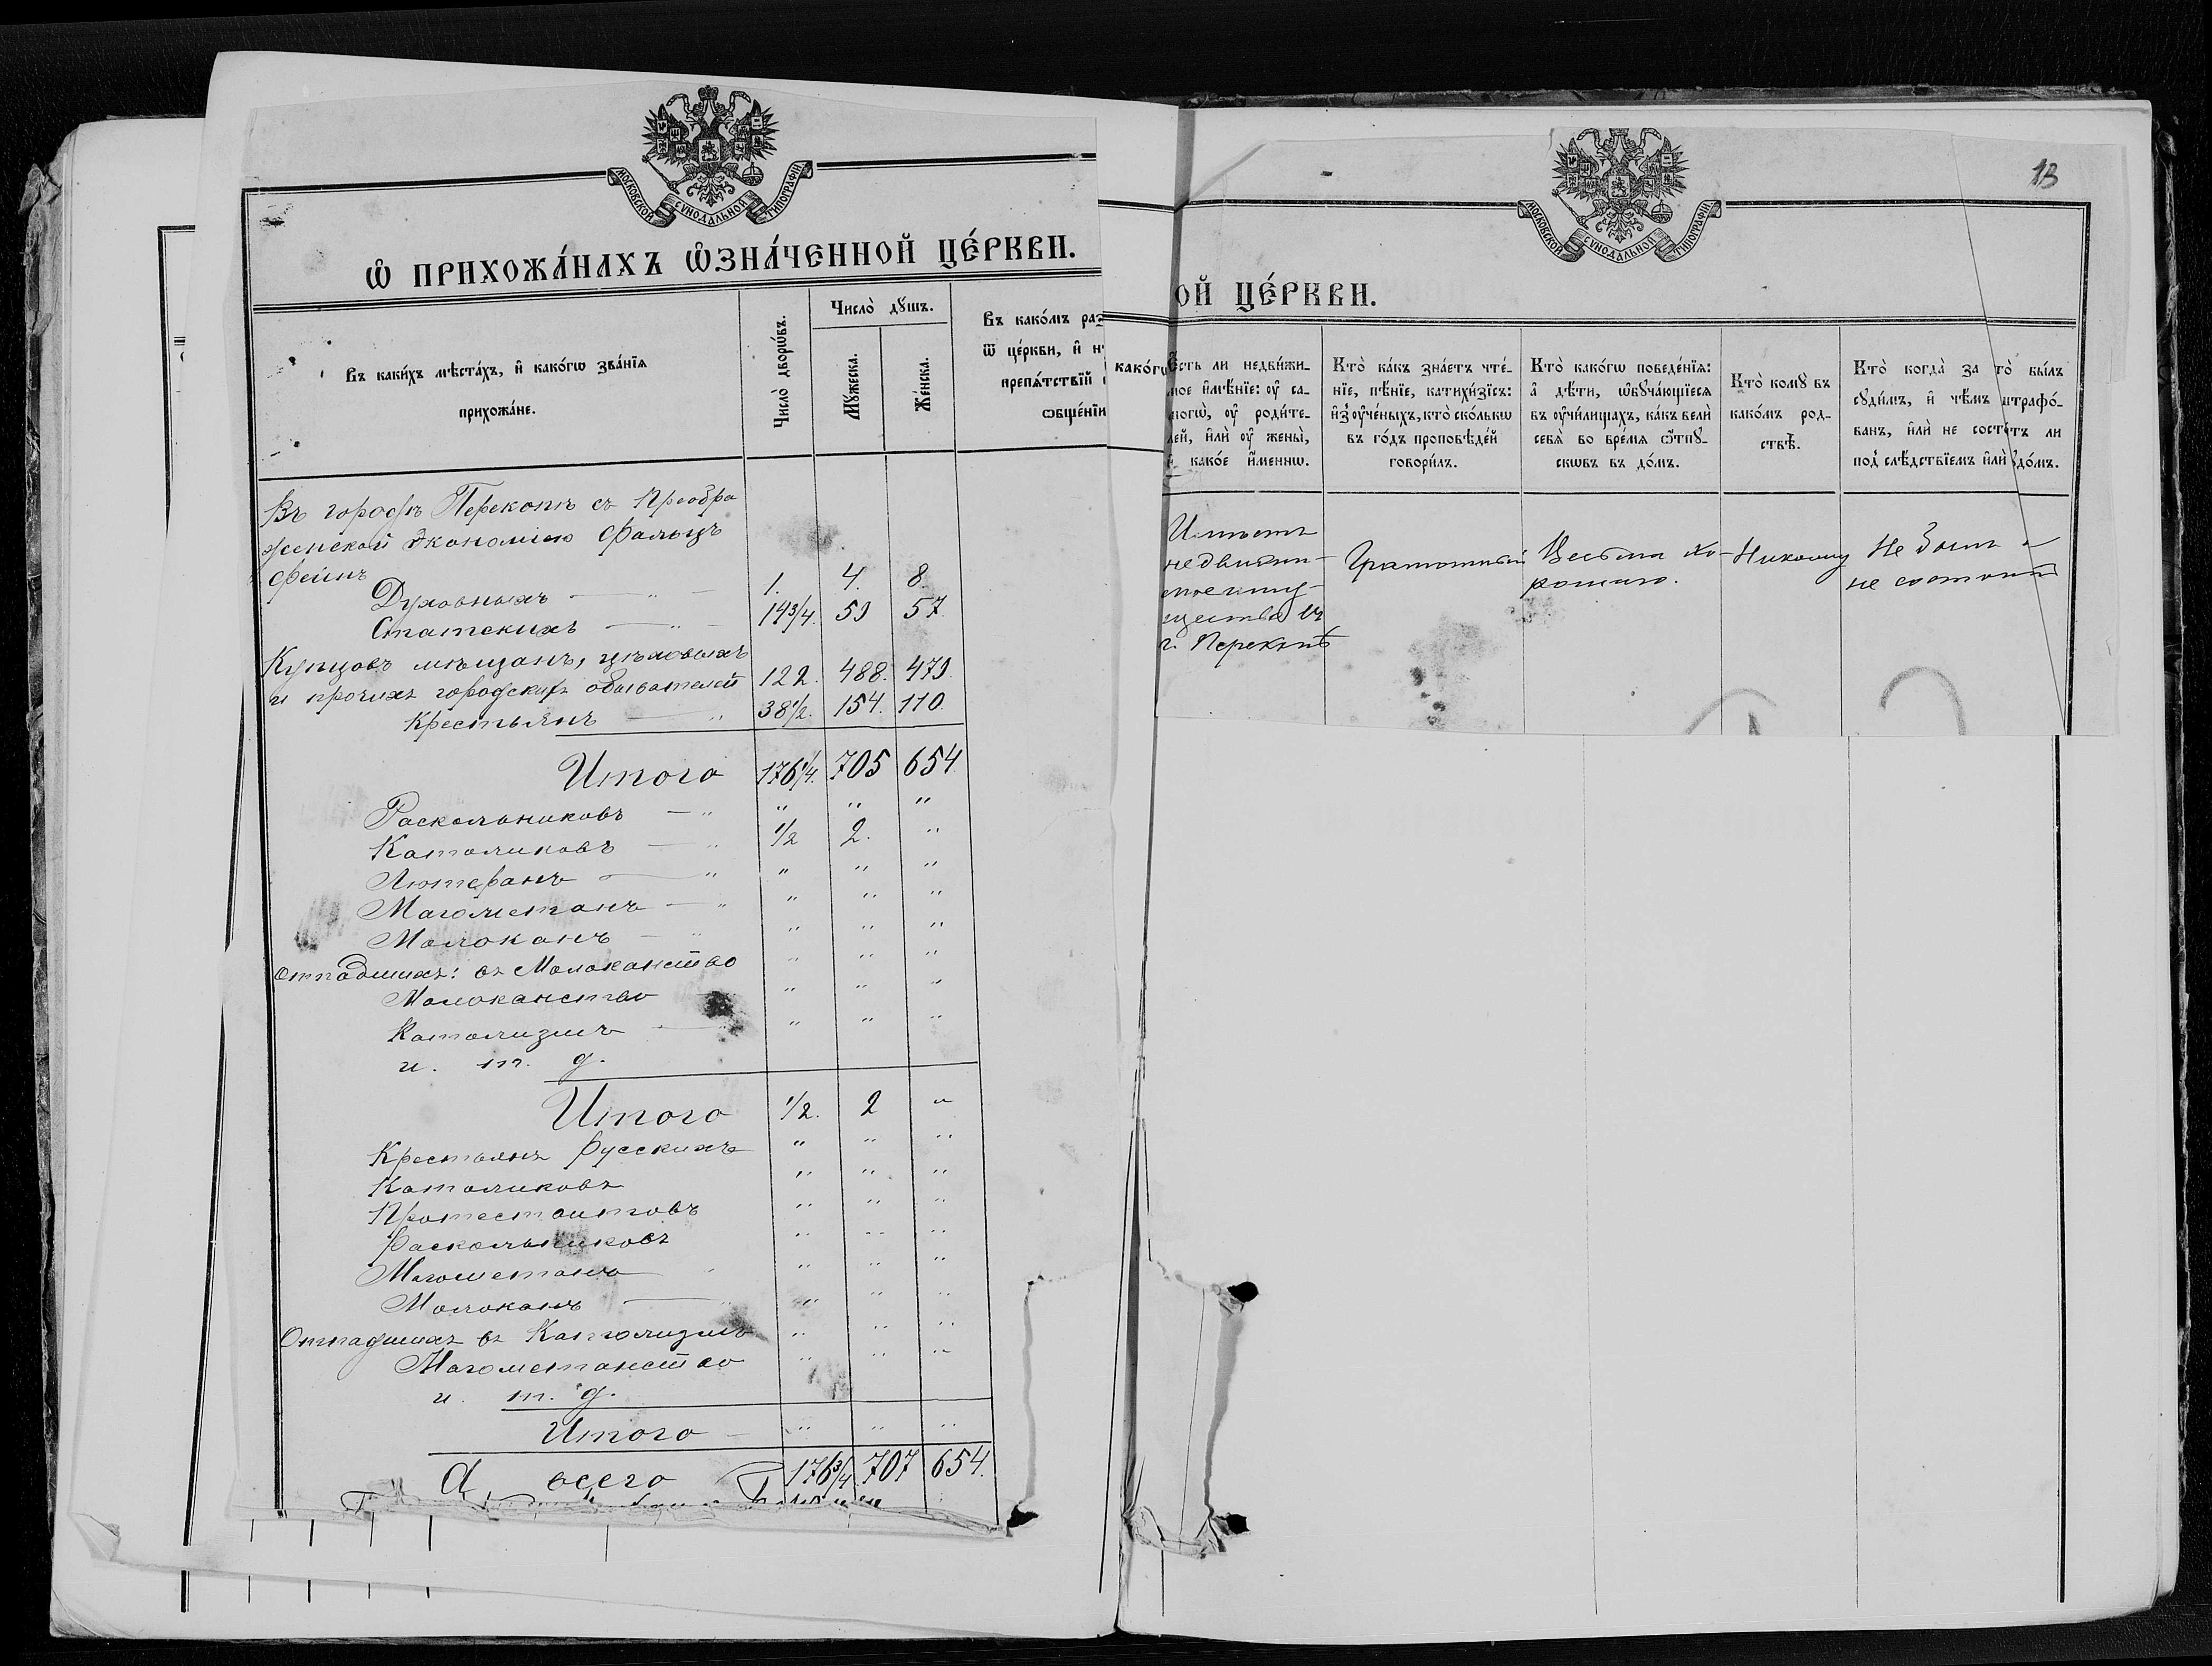 МОСКОВСКОЙ СѴНОДАЛЬНОЙ ТИПОГРАФІИ
Ѽ ПРИХОЖА́НАХЪ Ѡ҆ЗНА́ЧЕННОЙ ЦЕ́РКВИ.
Въ каки́хъ мѣста́хъ, и҆ како́гѡ зва́нїѧ
прихожа́не.
Число̀ дворѡ́въ.
Число̀ дꙋшъ.
Мꙋ́жеска.
Же́нска.
Въ како́мъ раз
ѿ це́ркви, и҆ н
препѧ́тствїй
ѡбще́нїи
Въ городѣ Перекопѣ съ Преобра
женской экономіею Фальцъ
фейнъ
Духовныхъ — " — 1. 4. 8.
Статскихъ — " — 14 3/4. 59 57.
Купцовъ мѣщанъ, цѣховыхъ
и прочихъ городскихъ обывателей 122. 488. 479.
Крестьянъ — " 38 1/2. 154. 110.
Итого 176 1/4. 705 654
Раскольниковъ — " " " "
Католиковъ — " 1/2 2. "
Лютеранъ — " " " "
Магометанъ — " " " "
Молоканъ — " " " "
Отпадшихъ: въ Молоканство " " "
Молоканство " " "
Католизмъ — " " "
и. т. д.
Итого 1/2. 2 "
Крестьянъ Русскихъ " " "
Католиковъ " " "
Протестантовъ " " "
Раскольниковъ " " "
Магометанъ " " " "
Молоканъ — " " " "
Отпадшихъ въ Католизмъ " " "
Магометанство " " "
и. т. д.
Итого — " " "
А всего 176 3/4 707 654.
13
МОСКОВСКОЙ СѴНОДАЛЬНОЙ ТИПОГРАФІИ
ОЙ ЦЕ́РКВИ.
како́гѡ
Є҆сть ли недви́жи-
мое и҆мѣ́нїе: оу҆ са-
могѡ̀, оу҆ роди́те-
лей, и҆лѝ оу҆ жены̀,
и҆ како́е и҆́меннѡ.
Кто̀ ка́къ зна́етъ чте́-
нїе, пѣ́нїе, катихи́зїсъ:
и҆з̾ оу҆че́ныхъ, кто̀ ско́лькѡ
въ го́дъ проповѣ́дей
говори́лъ.
Кто̀ како́гѡ поведе́нїѧ:
а҆ дѣ́ти, ѡ҆бꙋча́ющїесѧ
въ оу҆чи́лищахъ, ка́къ велѝ
себѧ̀ во вре́мѧ ѿпꙋ-
скѡвъ въ до́мъ.
Кто̀ комꙋ̀ въ
како́мъ род-
ствѣ̀.
Кто̀ когда̀ за то̀ бы́лъ
сꙋди́мъ, и҆ чѣ́мъ штрафо́-
ванъ, и҆лѝ не состои́тъ ли
под̾ слѣ́дствїемъ и҆лѝ сꙋдо́мъ.
Имѣетъ
недвижи-
мое иму-
щество въ
г. Перекопѣ
Грамотный
Весьма хо-
рошаго.
Никому
Не былъ и
не состоитъ